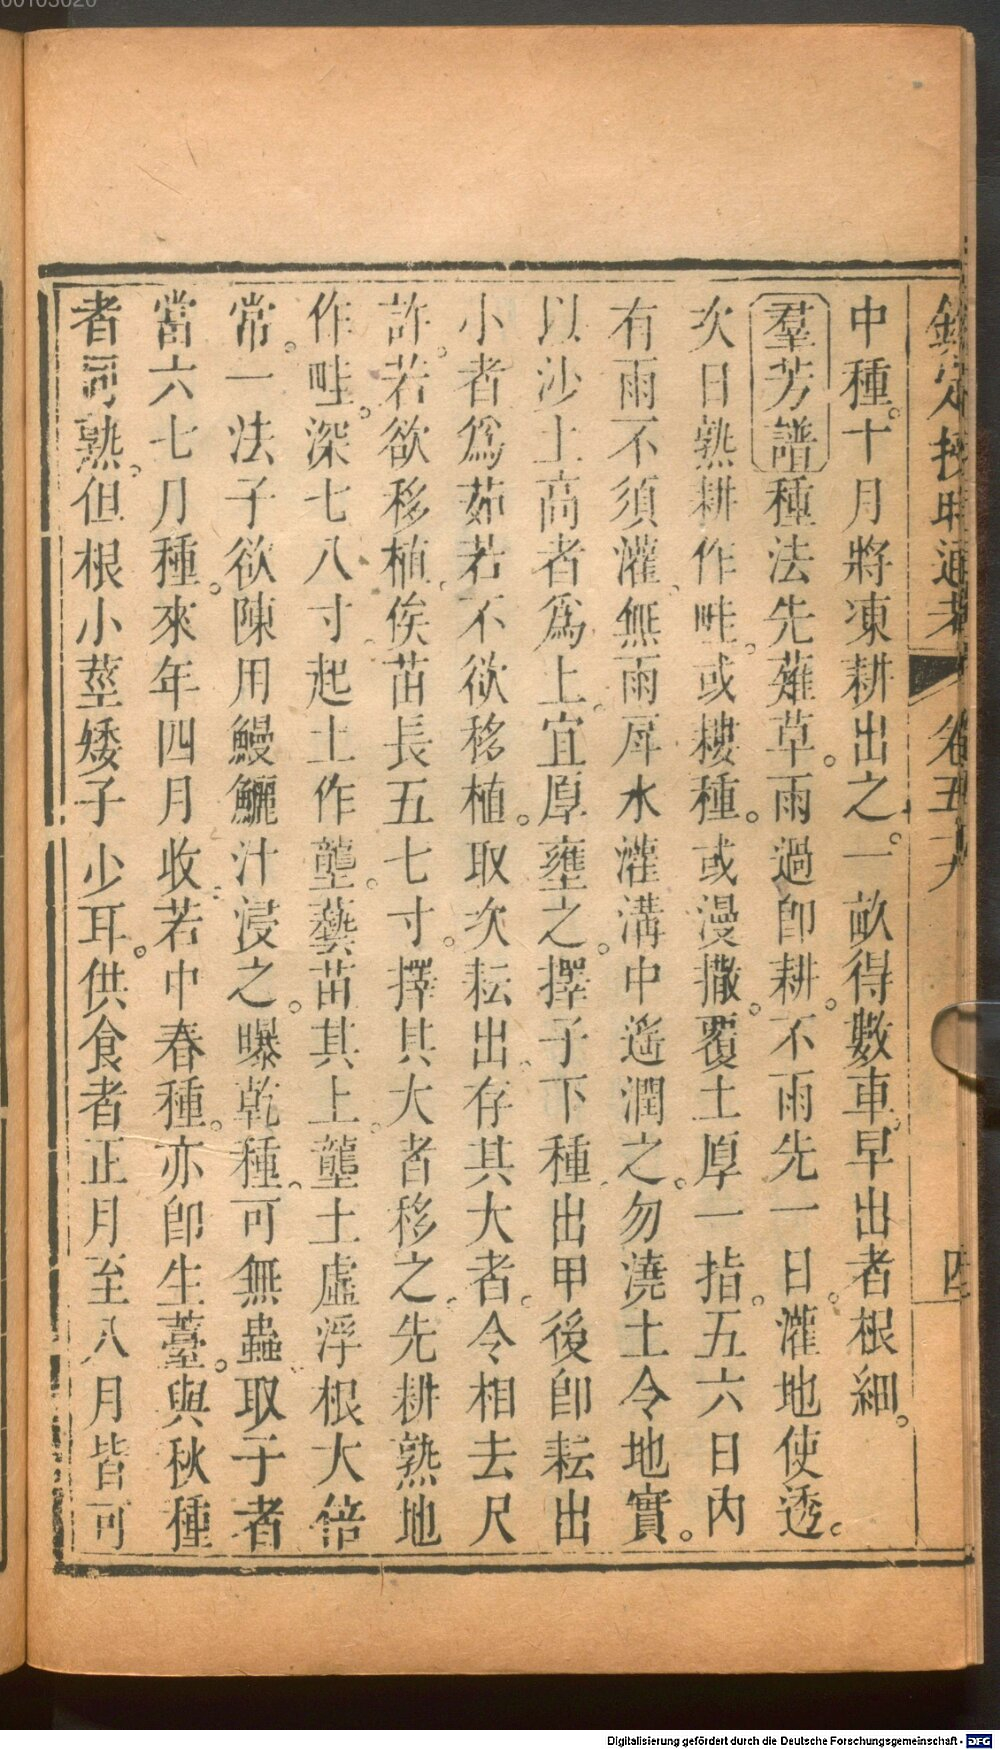 00103020
欽定授時通考 卷五十六 四
中種。十月將凍耕出之。一畝得數車。早出者根細。
羣芳譜種法先薙草。雨過卽耕。不雨先一日。灌地使透。
次日熟耕作畦。或耬種。或漫撒。覆土厚一指。五六日內
有雨不須灌。無雨戽水灌溝中遙潤之。勿澆土令地實。
以沙土高者爲上。宜厚壅之。擇子下種出甲後卽耘出
小者爲茹若不欲移植。取次耘出。存其大者。令相去尺
許。若欲移植。俟苗長五七寸。擇其大者移之。先耕熟地
作畦。深七八寸。起土作壟。藝苗其上。壟土虛浮根大倍
常。一法子欲陳用鰻鱺汁浸之。曝乾種。可無蟲。取子者
當六七月種。來年四月收。若中春種。亦卽生薹。與秋種
者同熟。但根小莖矮子少耳。供食者正月至八月皆可
Digitalisierung gefördert durch die Deutsche Forschungsgemeinschaft - DFG